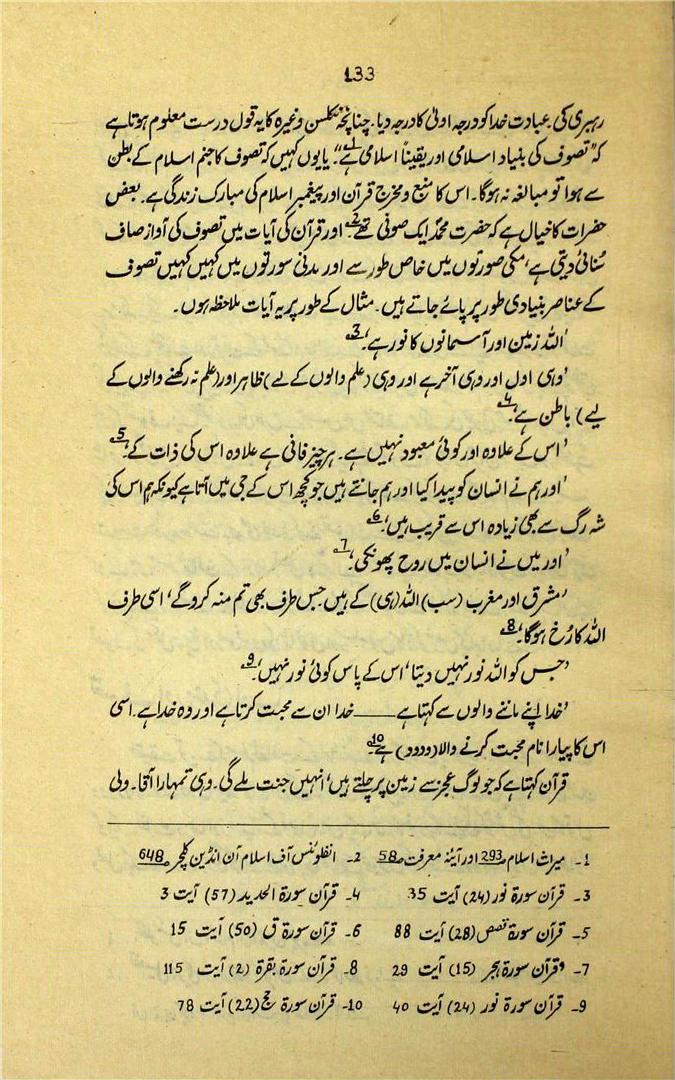 133
رہبری کی عبادت خدا کو درجہ اولیٰ کا درجہ دیا۔ چنانچہ نکلسن وغیرہ کا یہ قول درست معلوم ہوتا ہے
کہ "تصوف کی بنیاد اسلامی اور یقیناً اسلامی ہے"۱ یا یوں کہیں کہ تصوف کا جنم اسلام کے بطن
سے ہوا تو مبالغہ نہ ہوگا۔ اس کا منبع و مخرج قرآن اور پیغمبر اسلام کی مبارک زندگی ہے۔ بعض
حضرات کا خیال ہے کہ حضرت محمدؐ ایک صوفی تھے2 اور قرآن کی آیات میں تصوف کی آواز صاف
سُنائی دیتی ہے، مکی صورتوں میں خاص طور سے اور مدنی سورتوں میں کہیں کہیں تصوف
کے عناصر بنیادی طور پر پائے جاتے ہیں۔ مثال کے طور پر یہ آیات ملاحظہ ہوں۔
'اللہ زمین اور آسمانوں کا نور ہے'3
'وہی اول اور وہی آخر ہے اور وہی (علم والوں کے لیے) ظاہر اور (علم نہ رکھنے والوں کے
لیے) باطن ہے'4
'اس کے علاوہ اور کوئی معبود نہیں ہے۔ ہر چیز فانی ہے علاوہ اس کی ذات کے'5
'اور ہم نے انسان کو پیدا کیا اور ہم جانتے ہیں جو کچھ اس کے جی میں آتا ہے کیونکہ ہم اس کی
شہ رگ سے بھی زیادہ اس سے قریب ہیں'6
'اور میں نے انسان میں روح پھونکی'7
'مشرق اور مغرب (سب) اللہ (ہی) کے ہیں۔ جس طرف بھی تم منہ کرو گے، اسی طرف
اللہ کا رُخ ہوگا'8
'جس کو اللہ نور نہیں دیتا، اس کے پاس کوئی نور نہیں'9
'خدا اپنے ماننے والوں سے کہتا ہے ــــــ خدا ان سے محبت کرتا ہے اور وہ خدا سے۔ اسی
اس کا پیارا نام محبت کرنے والا (ودود) ہے'10
قرآن کہتا ہے کہ جو لوگ عجز سے زمین پر چلتے ہیں، انہیں جنت ملے گی۔ وہی تمہارا آقا۔ ولی
1۔ میراث اسلام ص293 اور آئینہ معرفت ص58 2۔ انفلوئنس آف اسلام آن انڈین کلچر ص648
3۔ قرآن سورۃ نور (24) آیت 35 4۔ قرآن سورۃ الحدید (57) آیت 3
5۔ قرآن سورۃ قصص (28) آیت 88 6۔ قرآن سورۃ ق (50) آیت 15
7۔ قرآن سورۃ ہجر (15) آیت 29 8۔ قرآن سورۃ بقرۃ (2) آیت 115
9۔ قرآن سورۃ نور (24) آیت 40 10۔ قرآن سورۃ حج (22) آیت 78